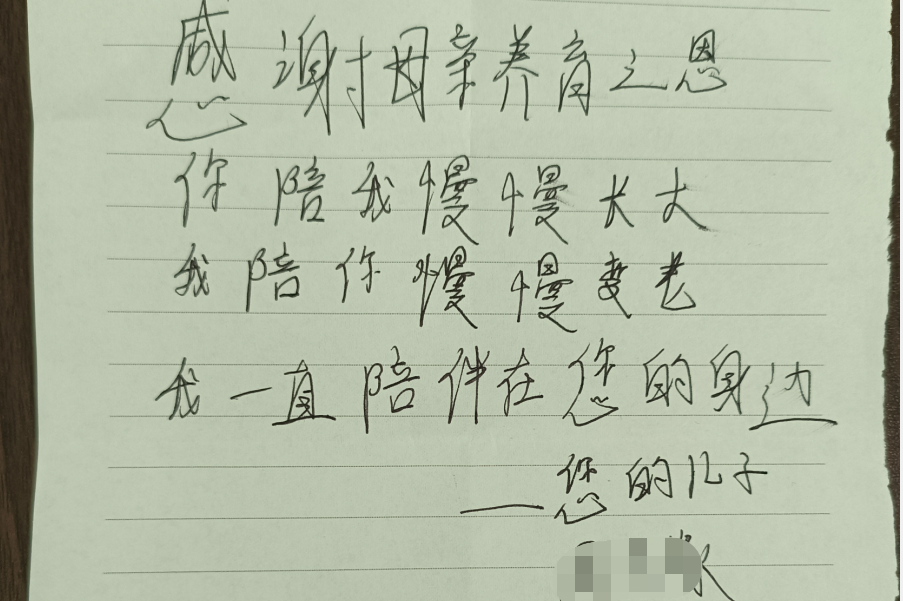 感谢母亲养育之恩
你陪我慢慢长大
我陪你慢慢变老
我一直陪伴在您的身边
——您的儿子